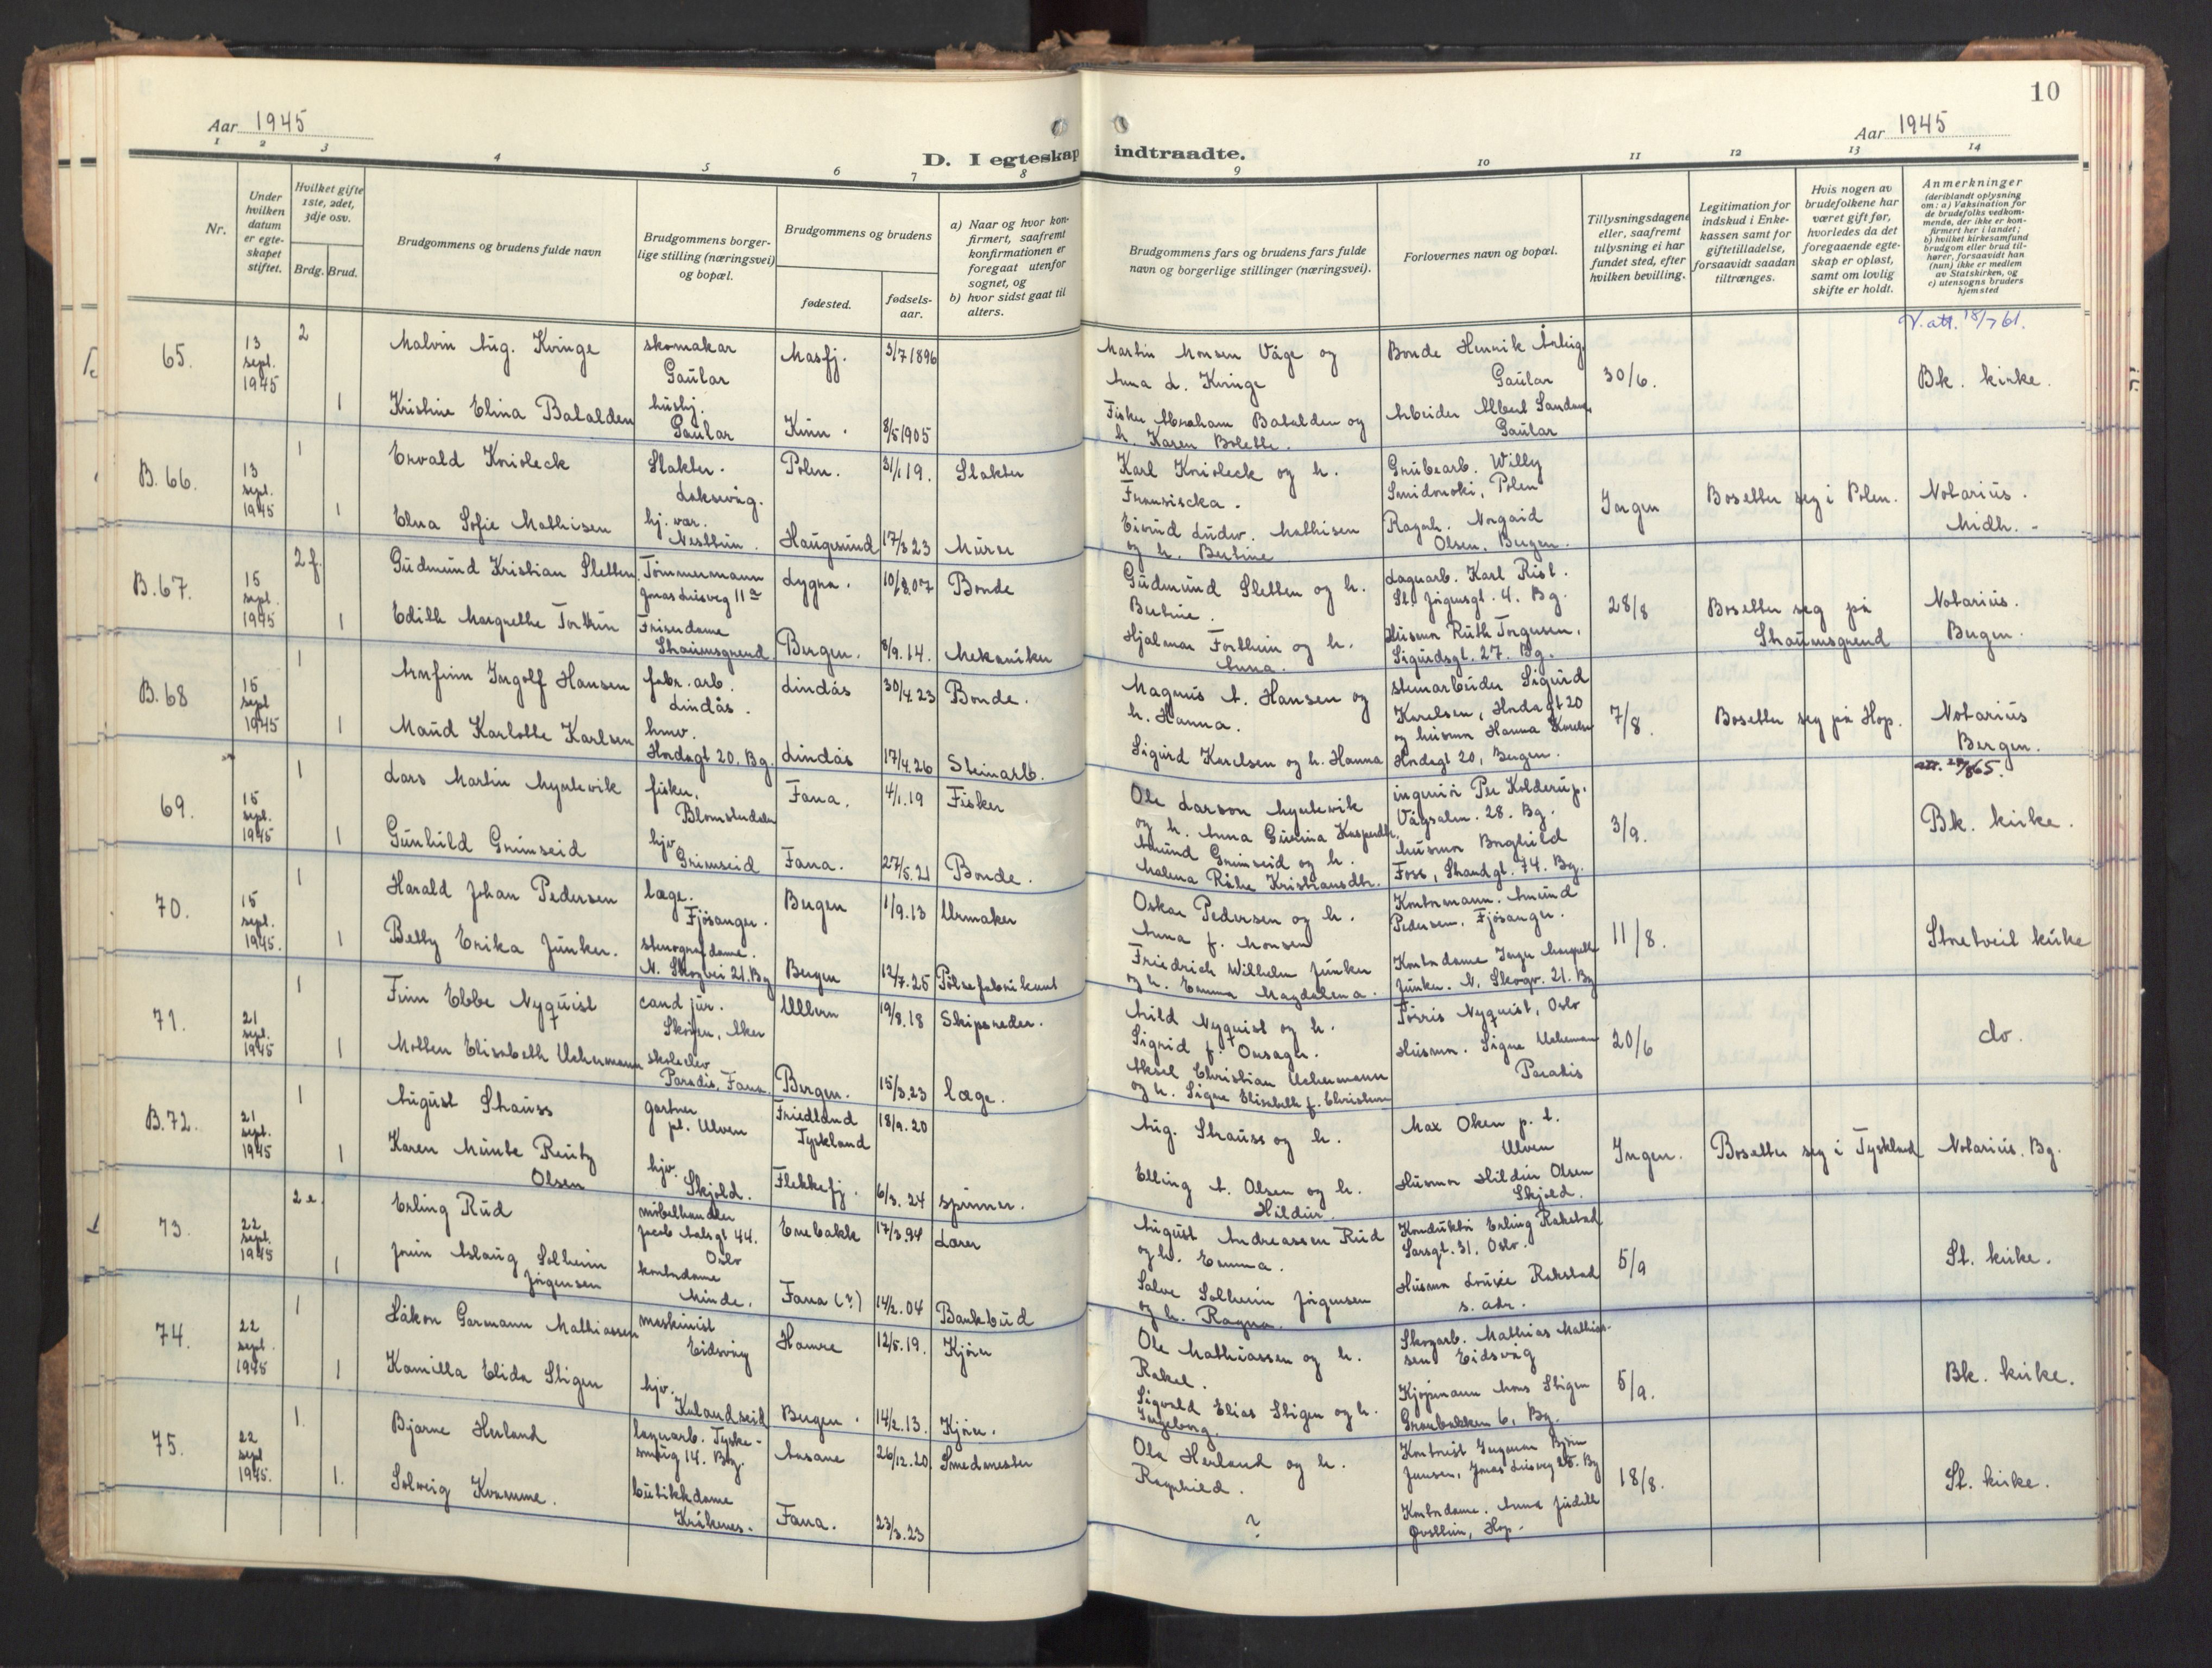 10
Aar 1945
Aar 1945
D. I egteskap indtraadte.
1 2 3 4 5 6 7 8 9 10 11 12 13 14
Nr.
Under hvilken datum er egteskapet stiftet.
Hvilket gifte 1ste, 2det, 3dje osv.
Brdg. Brud.
Brudgommens og brudens fulde navn
Brudgommens borgerlige stilling (næringsvei) og bopæl.
Brudgommens og brudens
fødested.
fødselsaar.
a) Naar og hvor konfirmert, saafremt konfirmationen er foregaat utenfor sognet, og
b) hvor sidst gaat til alters.
Brudgommens fars og brudens fars fulde navn og borgerlige stillinger (næringsvei).
Forlovernes navn og bopæl.
Tillysningsdagene eller, saafremt tillysning ei har fundet sted, efter hvilken bevilling.
Legitimation for indskud i Enkekassen samt for giftetilladelse, forsaavidt saadan tiltrænges.
Hvis nogen av brudefolkene har været gift før, hvorledes da det foregaaende egteskap er opløst, samt om lovlig skifte er holdt.
Anmerkninger
(deriblandt oplysning om: a) Vaksination for de brudefolks vedkommende, der ikke er konfirmert her i landet;
b) hvilket kirkesamfund brudgom eller brud tilhører, forsaavidt han (hun) ikke er medlem av Statskirken, og
c) utensogns bruders hjemsted
V. att. 18/7 61.
65. 13 sept. 1945 2 Malvin Aug. Kvinge skomakar Gaular Masfj. 3/7 1896 Martin Monsen Våge og Anna L. Kvinge Bonde Henrik Årlig Gaular 30/6. Bk. kirke.
1 Kristine Elina Batalden husbj. Gaular Kinn. 8/5 1905 Fisker Abraham Batalden og h. Karen Bolette. Arbeider Albert Gaular
B. 66. 13 sept. 1945 1 Ervald Knioleck Slakter. Laksevåg. Polen. 31/1 19. Slakter Karl Knioleck og h. Fransiscka. Grubearb. Willy Smidonoki, Polen Ingen Bosetter seg i Polen. Notarius. Midh. -
1 Elna Sofie Mathisen hj. vær. Nesttun. Haugesund 17/3 23 Murer Eivind Ludv. Mathisen og h. Bertine Ragnh. Norgaid Olsen, Bergen.
B. 67. 15 sept. 1945 2 f. Gudmund Kristian Sletten Tømmermann Jonas Liesveg 11a Lygra. 10/8.07 Bonde Gudmund Sletten og h. Bertine. Lagerarb. Karl Rist. St. Jørgensgt. 4. Bg. 28/8 Bosetter seg på Straumsgrend Notarius. Bergen.
1 Edith Margrethe Fortun Friserdame Straumsgrend Bergen. 8/9. 14. Mekaniker Hjalmar Forthun og h. Anna. Husmor Ruth Torgersen, Sigurdsgt. 27. Bg.
B. 68 15 sept 1945 1 Arnfinn Ingolf Hansen fabr. arb. Lindås. Lindås 30/4. 23 Bonde. Magnus A. Hansen og h. Hanna. stenarbeider Sigurd Karelsen, Hordagt 20 og husmor Hanna Karelsen Hordagt 20, Bergen. 7/8. Bosetter seg på Hop. Notarius Bergen.
1 Maud Karlotte Karlsen hmv. Hordagt 20. Bg. Lindås 17/4. 26 Steinarb. Sigurd Karelsen og h. Hanna
69. 15 sept. 1945 1 Lars Martin Myrlevik fisker. Blomsterdalen Fana. 4/1. 19 Fisker Ole Larson Myrlevik og h. Anna Gurina Kasperdtr. ingeniør Per Kolderup. Vågsalm. 28. Bg. 3/9. Bk. kirke.
1 Gunhild Grimseid hjv. Grimseid Fana. 27/5. 21 Bonde. Amund Grimseid og h. Malena Råke Kristiansdtr. husmor Borghild Foss, Strandgt. 74. Bg.
70. 15 sept. 1945. 1 Harald Johan Pedersen læge. Fjøsanger. Bergen 1/9. 13 Urmaker Oskar Pedersen og h. Anna f. Monsen Kontormann. Amund Pedersen, Fjøsanger. 11/8. Storetveit kirke
1 Betty Erika Junker. stenografdame. N. Skogvei 21. Bg Bergen 12/7. 25 Pølsefabrikant Friedrich Wilhelm Junker og h. Emma Magdalena. Kontordame Inger Margrethe Junker. N. Skogv. 21. Bg
71. 21 sept. 1945 1 Finn Ebbe Nyquist cand jur. Skøien, Aker Ullern 19/8. 18 Skipsreder. Arild Nyquist og h. Sigrid f. Onsager. Tørris Nyquist, Oslo 20/6 do.
1 Motten Elisabeth Uchermann skoleelev Paradis, Fana Bergen. 15/3. 23 læge. Aksel Christian Uchermann og h. Signe Elisabeth f. Christensen Husmor. Signe Uchermann Paradis
B. 72. 21 sept. 1945 1 August Strauss gartner pt. Ulven Friedland Tyskland 18/9. 20 Aug. Strauss og h. Max Oken p. t. Ulven Ingen. Bosetter seg i Tyskland Notarius. Bg.
1 Karen Munte Reutz Olsen hjv. Skjold. Flekkefj. 6/3. 24 spinner. Elling A. Olsen og h. Hildur. Husmor Hildur Olsen Skjold.
73. 22 sept. 1945 2 e. Erling Rud møbelhandler Jacob Aalsgt 44. Oslo Enebakk 17/3.94 Lærer August Andreassen Rud og h. Emma. Konduktør Erling Rakstad Sarsgt. 31. Oslo. 5/9 St. kirke.
1 Jenin Aslaug Solheim Jørgensen kontordame Minde. Fana (?) 14/2. 04 Bankbud Salve Solheim Jørgensen og h. Ragna. Husmor Louise Rakstad s. adr.
74. 22 sept. 1945 1 Håkon Garmann Mathiassen maskinist Eidsvåg Hamre 12/5. 19. Kjører Ole Mathiassen og h. Rakel. Skogarb. Mathias Mathiassen Eidsvåg 5/9. Bk. kirke.
1 Kamilla Elida Stigen hjv. Kalandseid Bergen. 14/2. 13. Kjører. Sigvald Elias Stigen og h. Ingeborg. Kjøpmann Mons Stigen Graubakken 6, Bg.
75. 22 sept 1945. 1. Bjarne Herland lagerarb. Tyskesmug 14. Bg. Aasane 26/12. 20. Smedmester Ola Herland og h. Ragnhild. Kontorist Ingemar Bjørn Jensen, Jonas Liesveg 25. Bg 18/8. St. kirke.
1. Solveig Kvamme. butikkdame Kråkenes. Fana. 23/3. 23 ? Kontordame. Anna Judith Østtun, Hop.
att. 8/65.